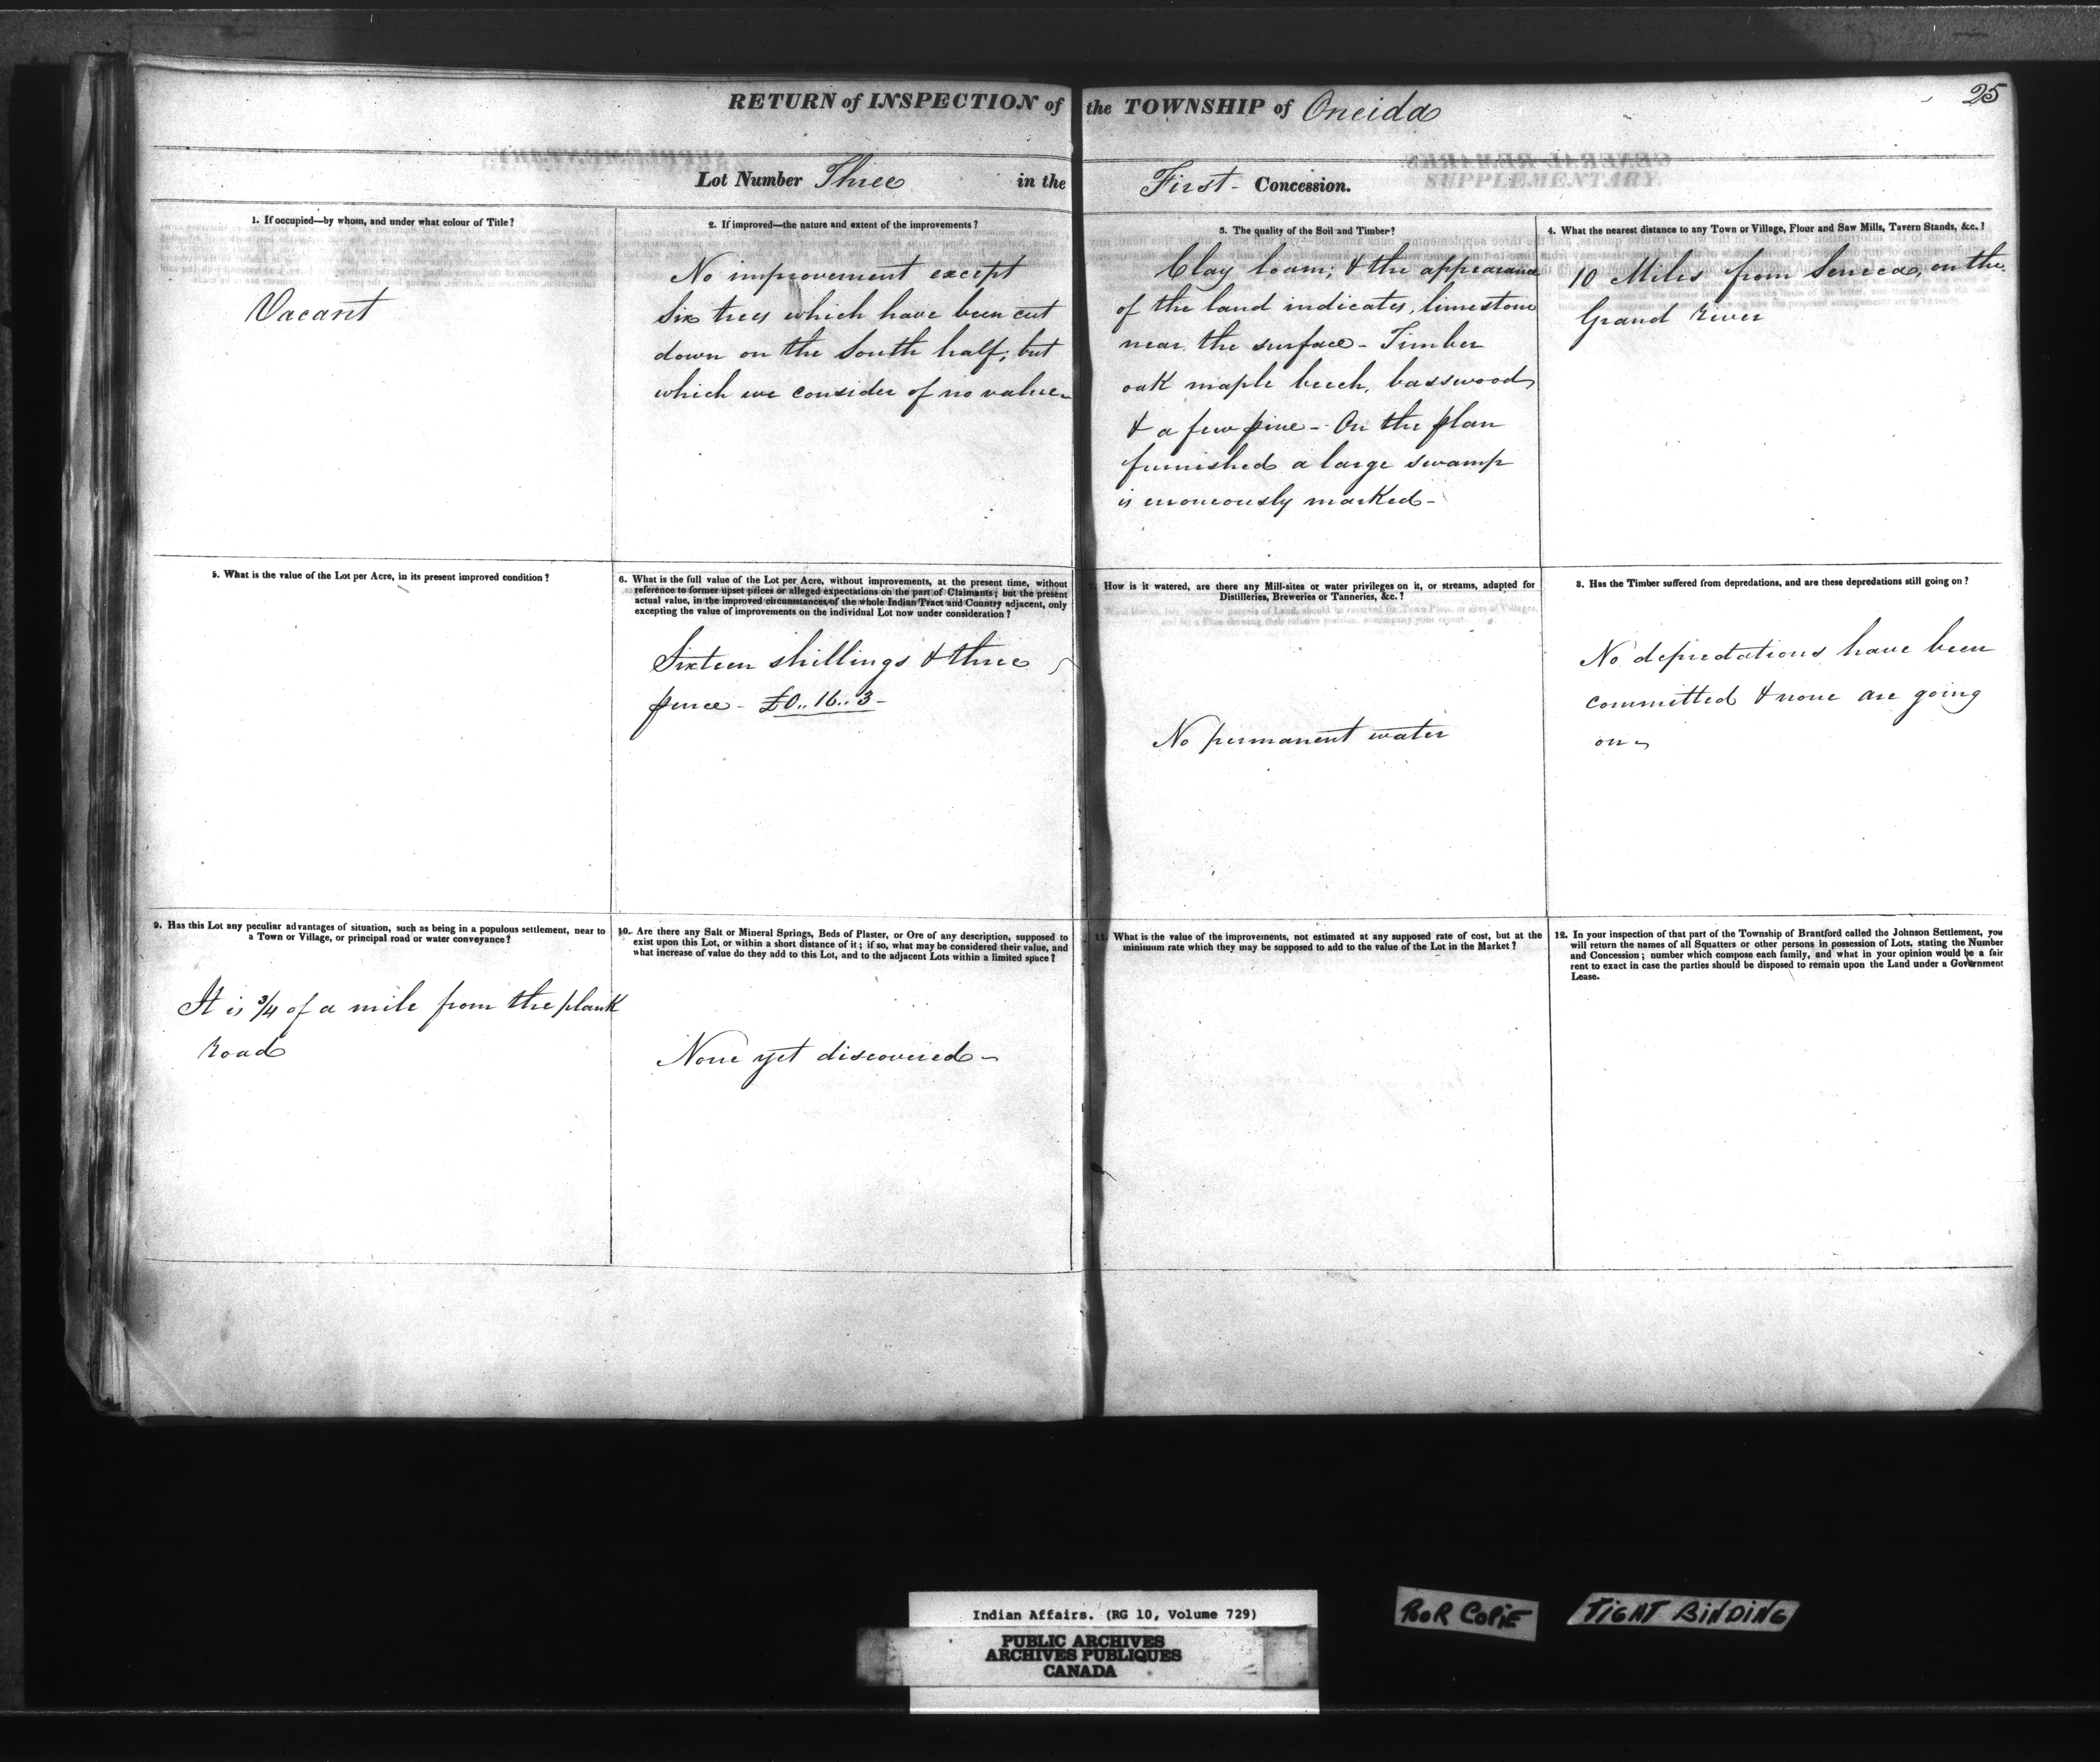 RETURN of INSPECTION of the TOWNSHIP of Oneida
25
Lot Number Three in the First - Concession.
1. If occupied—by whom, and under what colour of Title?
Vacant
2. If improved—the nature and extent of the improvements?
No improvement except
Six trees which have been cut
down on the South half; but
which we consider of no value
3. The quality of the Soil and Timber?
Clay loam; & the appearance
of the land indicates, limestone
near the surface - Timber
oak maple beech, basswood
& a few pine - On the plan
furnished a large swamp
is erroneously marked -
4. What the nearest distance to any Town or Village, Flour and Saw Mills, Tavern Stands, &c.?
10 Miles from Seneca, on the
Grand River
5. What is the value of the Lot per Acre, in its present improved condition?
6. What is the full value of the Lot per Acre, without improvements, at the present time, without
reference to former upset prices or alleged expectations on the part of Claimants; but the present
actual value, in the improved circumstances of the whole Indian Tract and Country adjacent, only
excepting the value of improvements on the individual Lot now under consideration?
Sixteen shillings & three
pence - £0..16..3 -
7. How is it watered, are there any Mill-sites or water privileges on it, or streams, adapted for
Distilleries, Breweries or Tanneries, &c.?
No permanent water
8. Has the Timber suffered from depredations, and are these depredations still going on?
No depredations have been
committed & none are going
on
9. Has this Lot any peculiar advantages of situation, such as being in a populous settlement, near to
a Town or Village, or principal road or water conveyance?
It is 3/4 of a mile from the plank
road
10. Are there any Salt or Mineral Springs, Beds of Plaster, or Ore of any description, supposed to
exist upon this Lot, or within a short distance of it; if so, what may be considered their value, and
what increase of value do they add to this Lot, and to the adjacent Lots within a limited space?
None yet discovered -
11. What is the value of the improvements, not estimated at any supposed rate of cost, but at the
minimum rate which they may be supposed to add to the value of the Lot in the Market?
12. In your inspection of that part of the Township of Brantford called the Johnson Settlement, you
will return the names of all Squatters or other persons in possession of Lots, stating the Number
and Concession; number which compose each family, and what in your opinion would be a fair
rent to exact in case the parties should be disposed to remain upon the Land under a Government
Lease.
Indian Affairs. (RG 10, Volume 729)
PUBLIC ARCHIVES
ARCHIVES PUBLIQUES
CANADA
POOR COPIE
TIGHT BINDING